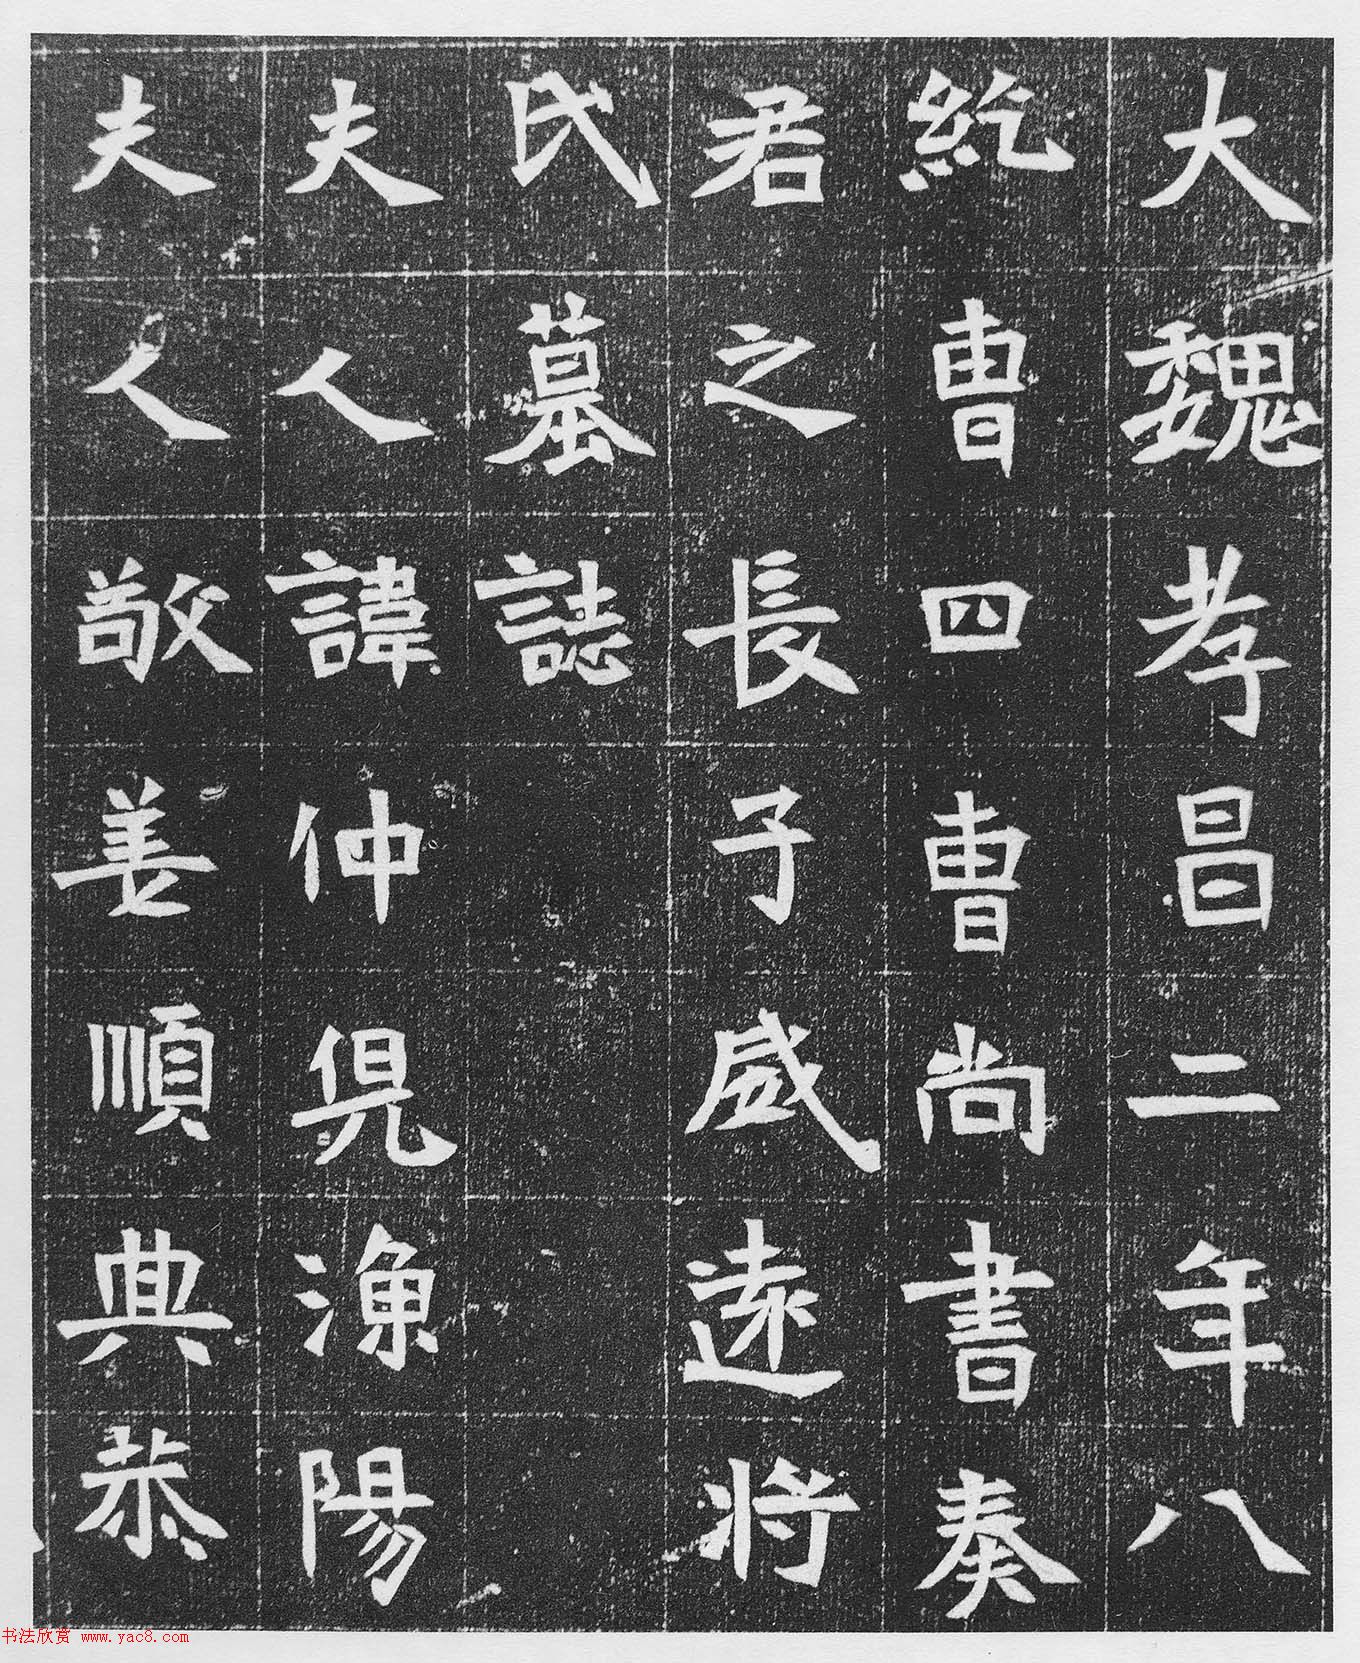 大魏孝昌二年八
紇曹四曹尚書奏
君之長子威遠將
氏墓誌
夫人諱仲兒漁陽
夫人敬善順典恭
书法欣赏 www.yac8.com